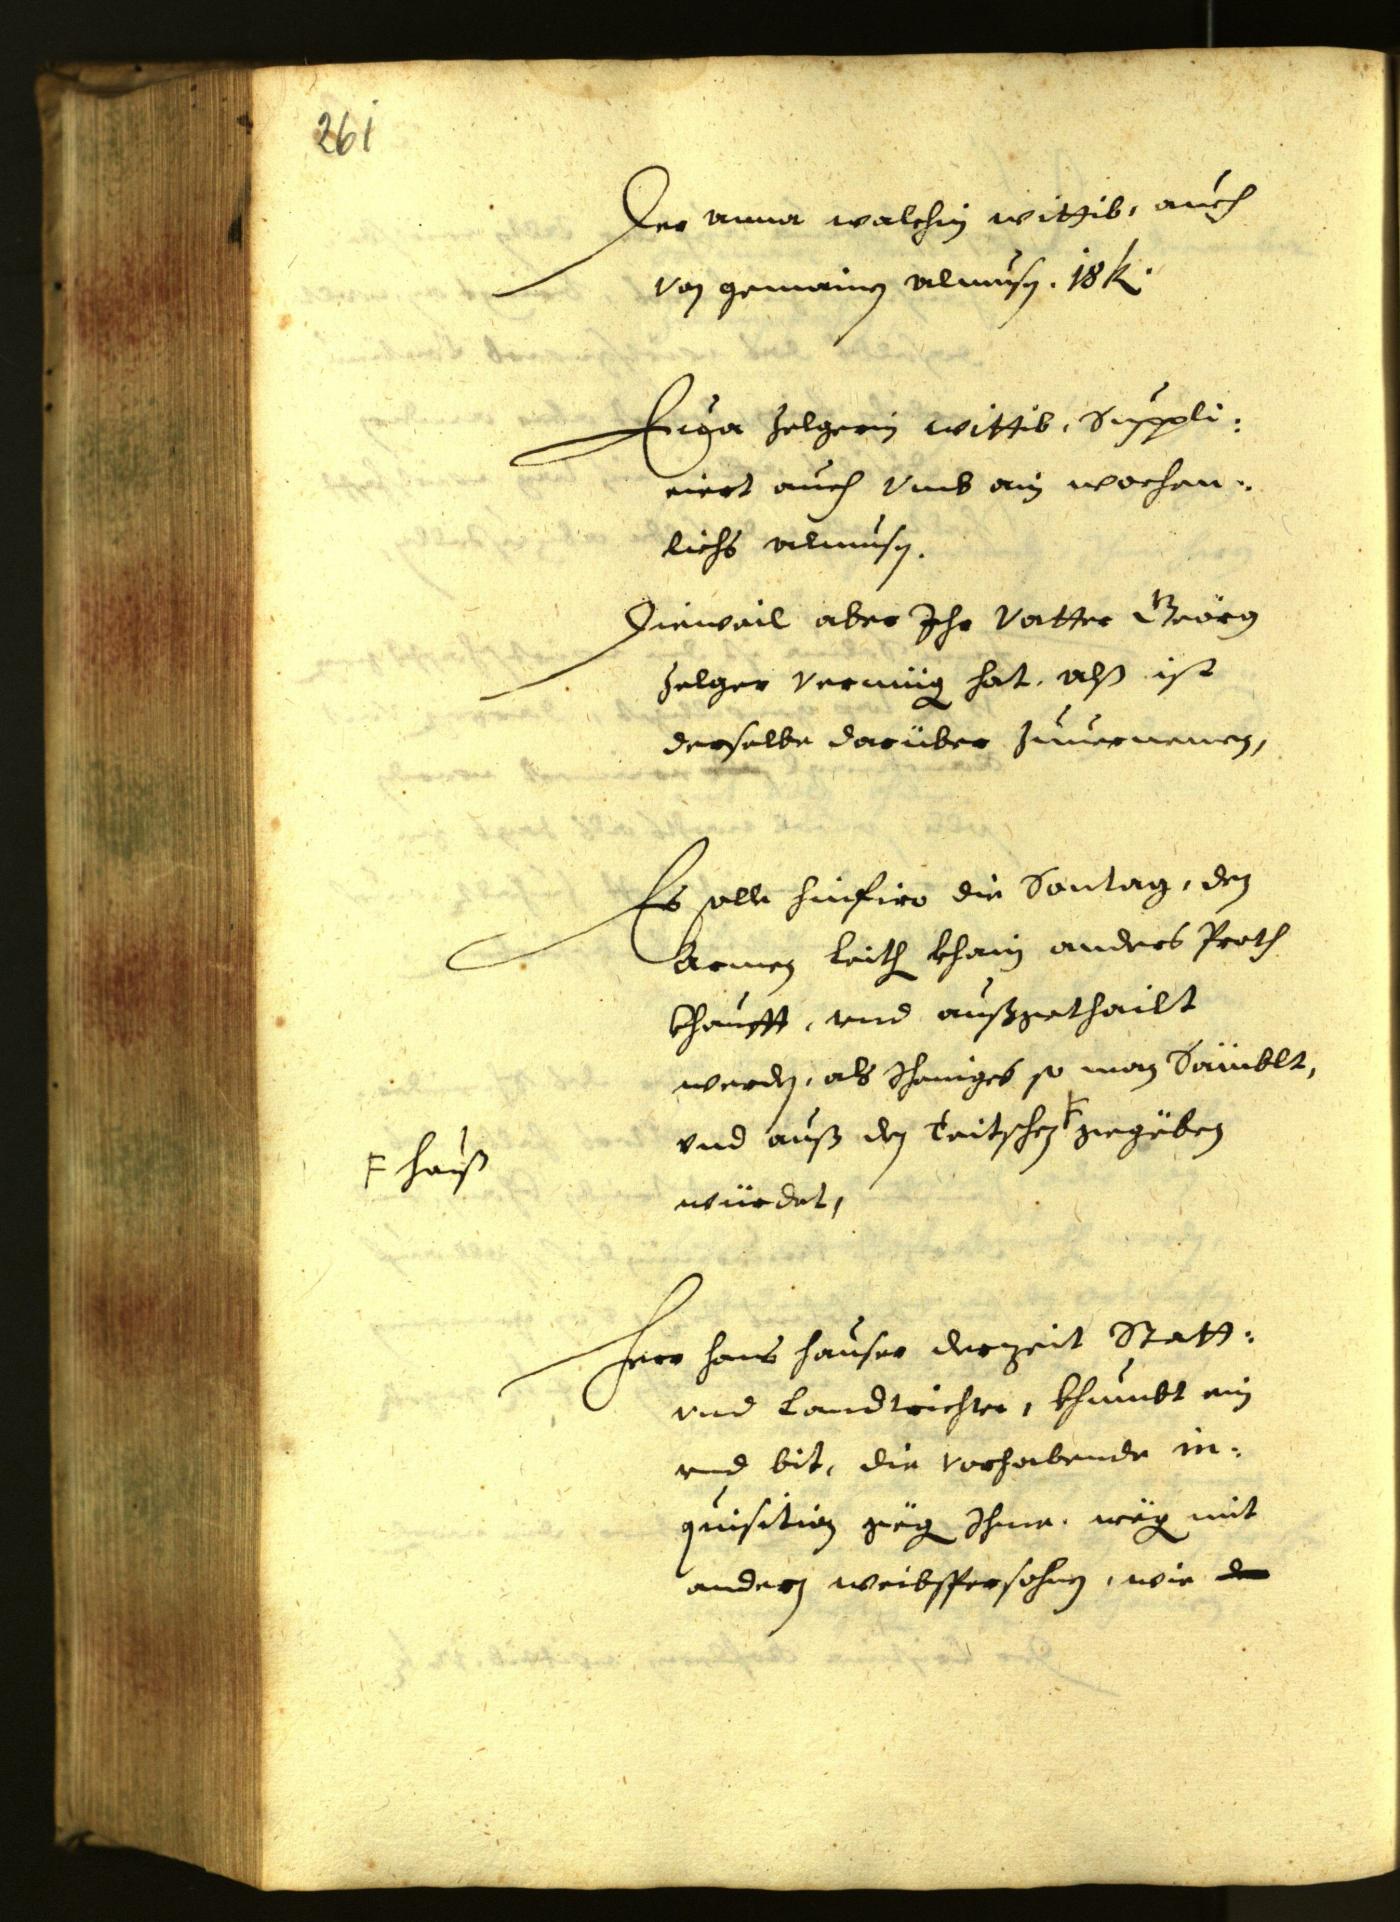 261
Der anna walchin wittib, auch
von gemainen almusen. 18 k.
Euga Zelgerin wittib, Suppli:
ciert auch umb ain wochen:
lichs almusen.
Dieweil aber Ihr Vatter Geörg
Zelger vermüg hat, alß ist
derselbe darüber zuuernemen,
Es solle hinfiro die Sontag, den
Armen leith khain anders Proth
khaufft, und außgethailt
werden, als Iheniges so man Sämblt,
und auß den Teitschen F gegeben
würdet,
F hauß
Herr hans hauser derzeit Statt:
und Landtrichter, khumbt ein
und bit, die vorhabende in:
quisition gegen Ihme, wegen mit
andern weibspersohnen, wie